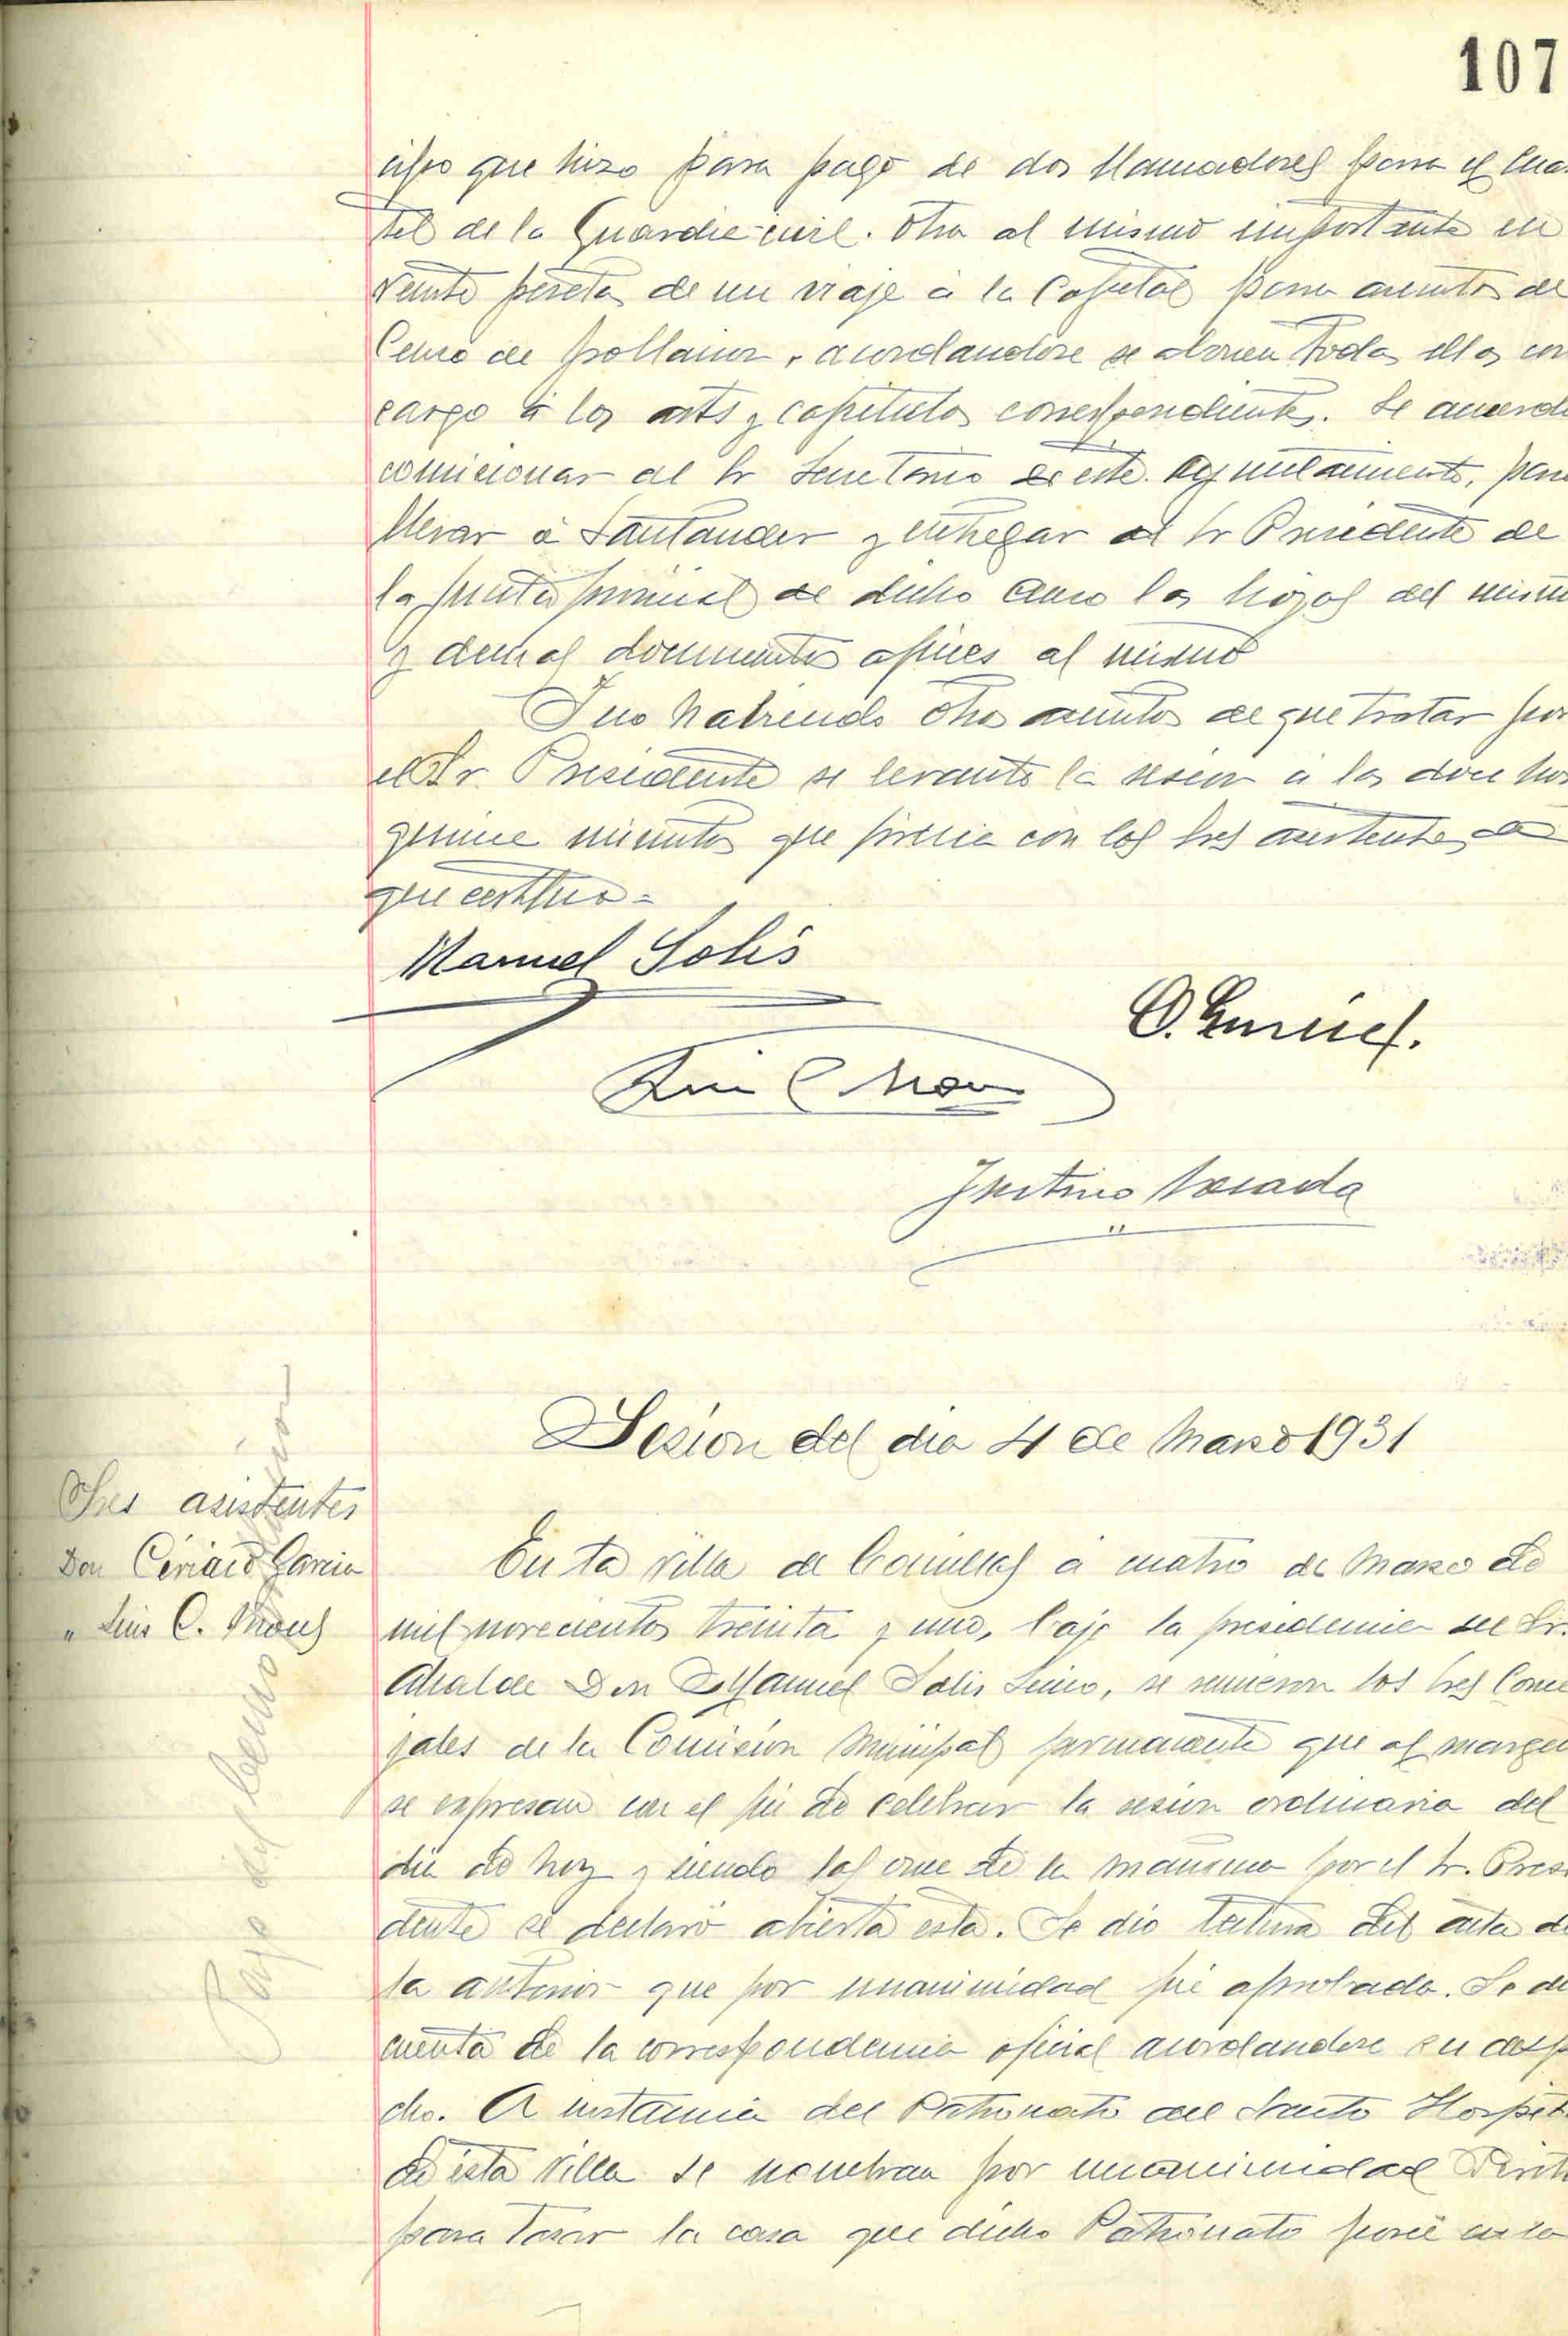 107
que hizo para pago de dos llamadores para el Cuar
tel de la Guardia civil. Otra al mismo importante en
veinte pesetas de un viaje á la Capital para asuntos del
Censo de acordandose se abonen todas ellas con
cargo á los arts y capitulos correspondientes. Se acuerda
comicionar al Sr Secretario de este Ayuntamiento, para
llevar á Santander y entregar al Sr Presidente de
la Junta de dicho Censo las hojas del mismo
y demas documentos afines al mismo
Y no habiendo otros asuntos de que tratar por
el Sr. Presidente se levanto la sesion a las doce horas
quince minutos que firma con los Sres asistentes de
que certifico =
Manuel Solis
Luis C Mons
Sesion del dia 4 de Marzo 1931
Sres asistentes
Don Ciriaco Garcia
" Luis C. Mons
En la villa de Comillas á cuatro de Marzo de
mil novecientos treinta y uno, bajo la presidencia del Sr.
Alcalde Don Manuel Solis se reunieron los Sres Conce
jales de la Comisión Municipal permanente que al margen
se expresan con el fin de celebrar la sesion ordinaria del
dia de hoy y siendo las once de la mañana por el Sr. Presi
dente se declaró abierta esta. Se dio lectura del acta de
la anterior que por unanimidad fué aprobada. Se dió
cuenta de la correspondencia oficial acordandose su despa
cho. A instancia del Patronato del Santo Hospital
de esta Villa se nombran por unanimidad
para tasar la casa que dicho Patronato posee en la
Pago del